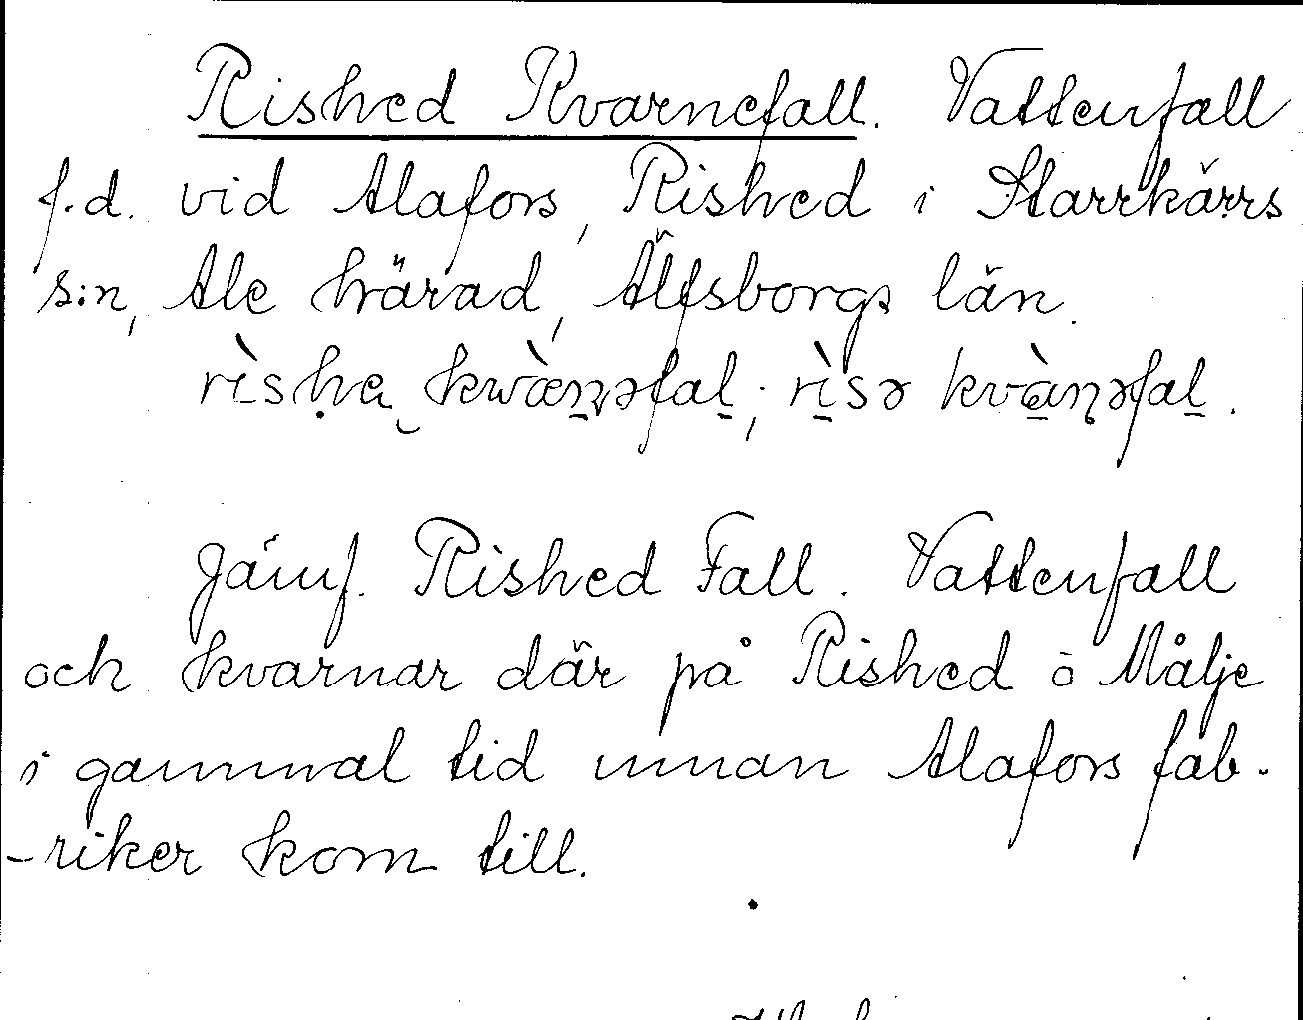 Rished Kvarnefall. Vattenfall
f.d. vid Alafors, Rished i Starrkärrs
s:n, Ale härad, Älfsborgs län.
rìsḥe kwæ̀ṉəfaḻ; rì̱sə kvà̱ṇəfaḻ.
Jämf. Rished Fall. Vattenfall
och kvarnar där på Rished å Målje
i gammal tid innan Alafors fab-
-riker kom till.